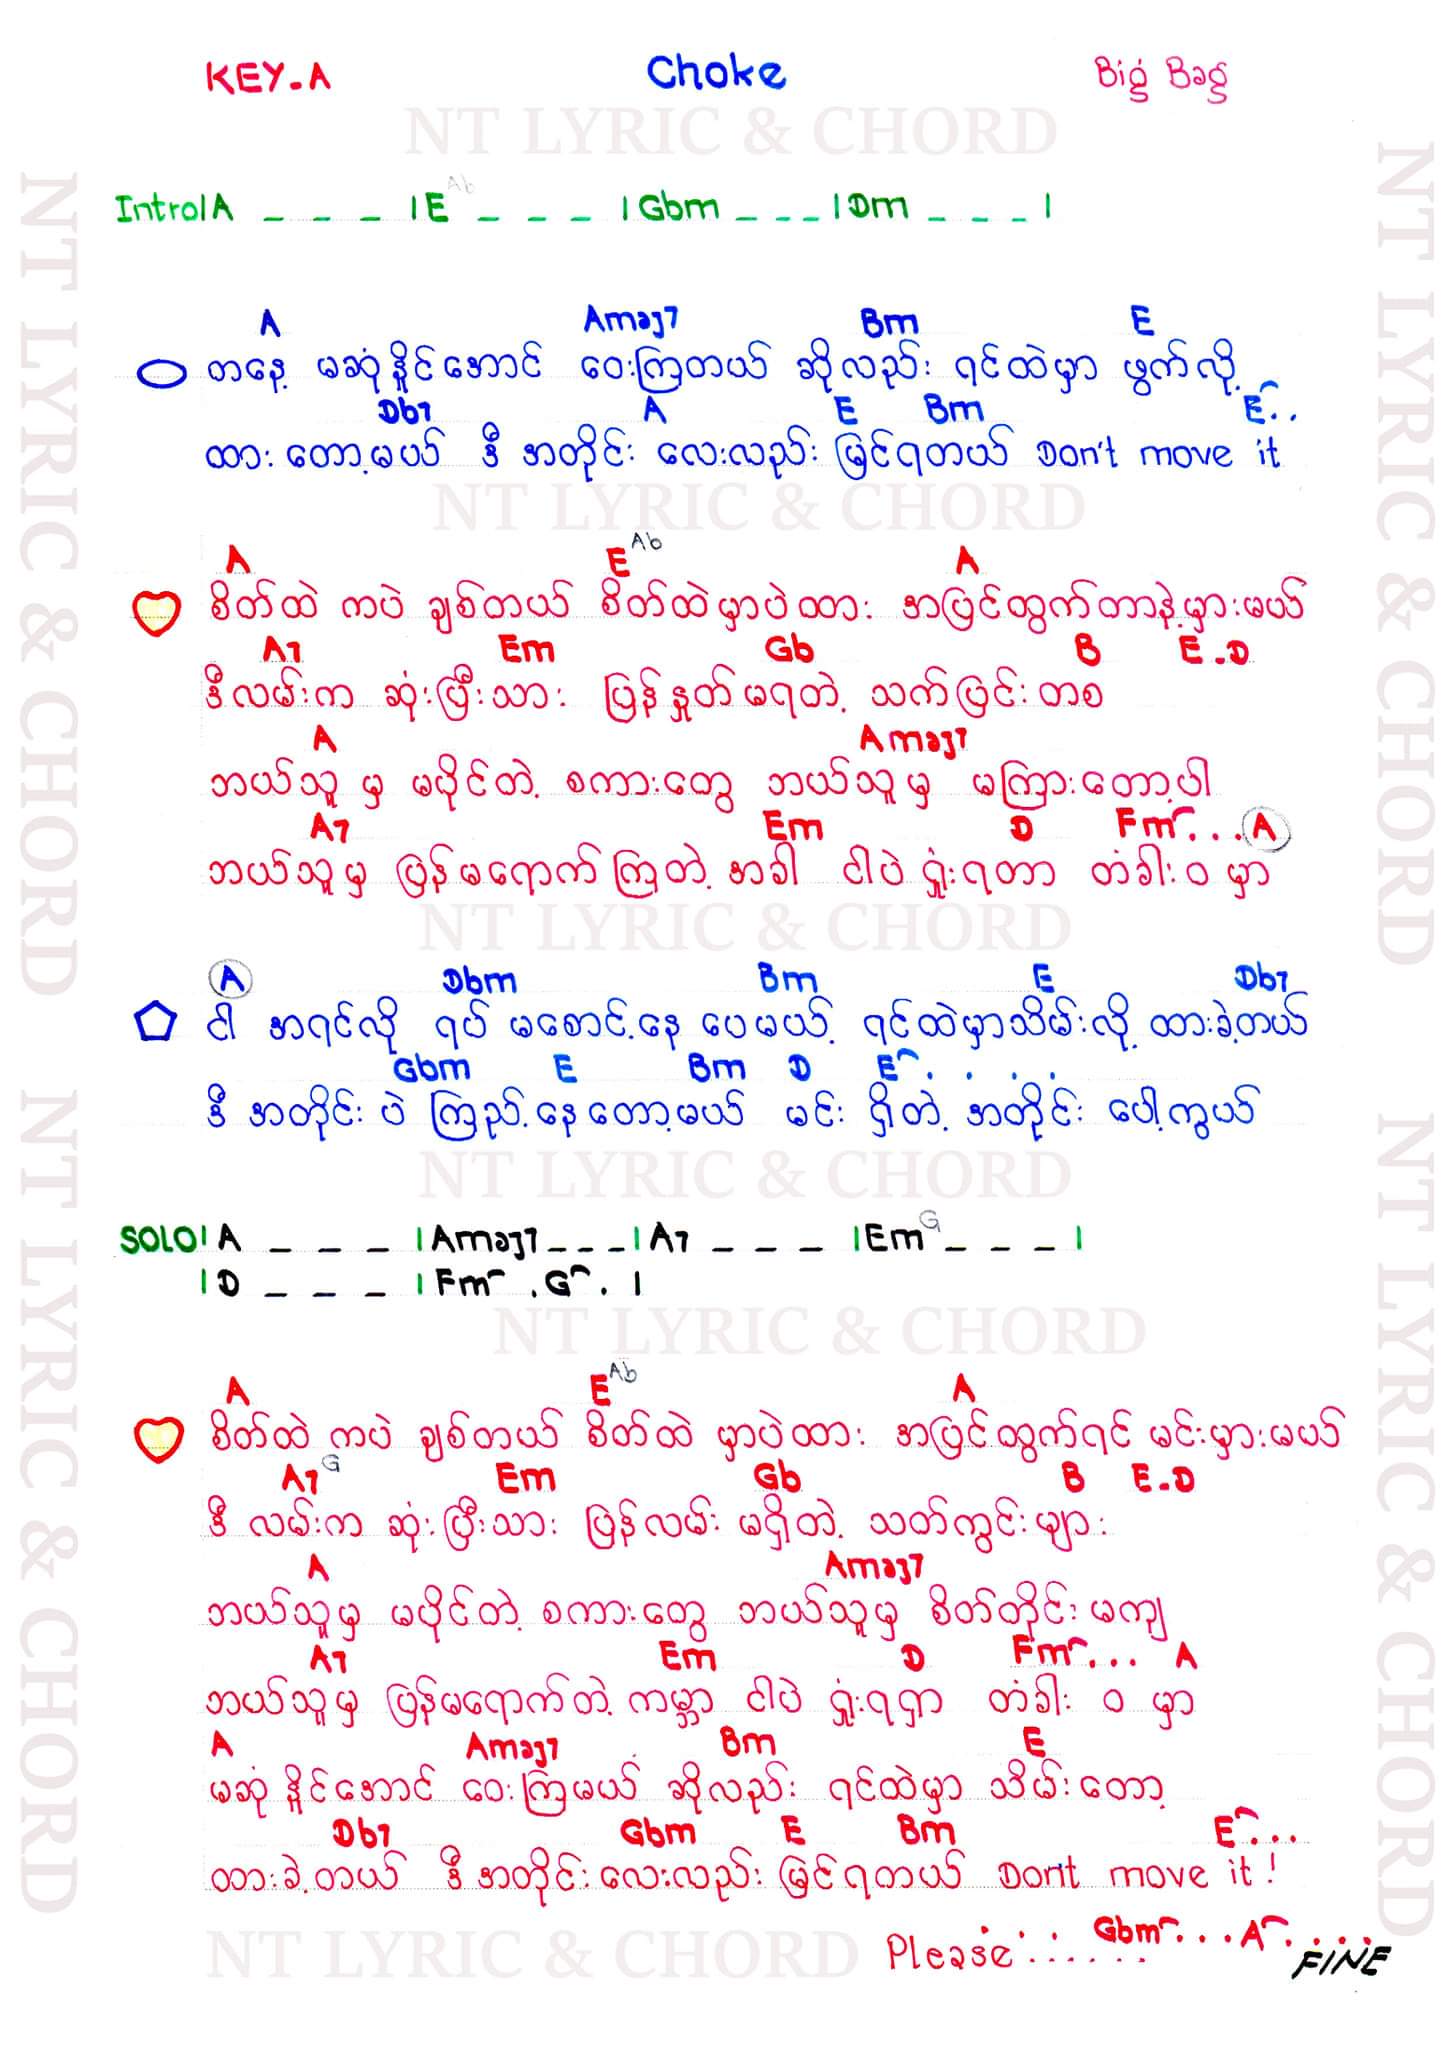 KEY-A Choke Big Bag
NT LYRIC & CHORD
Intro|A _ _ _ |E Ab _ _ _ |Gbm _ _ _ |Dm _ _ _ |
A Amaj7 Bm E
တနေ့ မဆုံနိူင်အောင် ဝေးကြတယ် ဆိုလည်း ရင်ထဲမှာ ဖွက်လို့
Db7 A E Bm E..
ထား တော့မယ် ဒီ အတိုင်း လေးလည်း မြင်ရတယ် Don't move it
NT LYRIC & CHORD
A E Ab A
စိတ်ထဲ ကပဲ ချစ်တယ် စိတ်ထဲမှာပဲထား အပြင်ထွက်တာနဲ့မှားမယ်
A7 Em Gb B E-D
ဒီလမ်းက ဆုံးပြီးသား ပြန်နှုတ်မရတဲ့ သက်ပြင်းတစ
A Amaj7
ဘယ်သူ မှ မပိုင်တဲ့ စကားတွေ ဘယ်သူမှ မကြားတော့ပါ
A7 Em D Fm... A
ဘယ်သူမှ ပြန်မရောက်ကြတဲ့ အခါ ငါပဲ ရှုံးရတာ တံခါးဝ မှာ
NT LYRIC & CHORD
A Dbm Bm E Db7
ငါ အရင်လို ရပ် မစောင့်နေ ပေမယ့် ရင်ထဲမှာသိမ်းလို့ ထားခဲ့တယ်
Gbm E Bm D E . . . .
ဒီ အတိုင်း ပဲ ကြည့်နေတော့မယ် မင်း ရှိတဲ့ အတိုင်း ပေါ့ကွယ်
NT LYRIC & CHORD
SOLO| A _ _ _ |Amaj7 _ _ _ |A7 _ _ _ |Em G _ _ _ |
|D _ _ _ |Fm . G . |
NT LYRIC & CHORD
A E Ab A
စိတ်ထဲ ကပဲ ချစ်တယ် စိတ်ထဲ မှာပဲထား အပြင်ထွက်ရင် မင်းမှားမယ်
A7 G Em Gb B E-D
ဒီ လမ်းက ဆုံးပြီးသား ပြန်လမ်း မရှိတဲ့ သတ်ကွင်းများ
A Amaj7
ဘယ်သူမှ မပိုင်တဲ့ စကားတွေ ဘယ်သူမှ စိတ်တိုင်းမကျ
A7 Em D Fm... A
ဘယ်သူမှ ပြန်မရောက်တဲ့ ကမ္ဘာ ငါပဲ ရှုံးရရှာ တံခါး ဝ မှာ
A Amaj7 Bm E
မဆုံ နိူင်အောင် ဝေးကြမယ် ဆိုလည်း ရင်ထဲမှာ သိမ်းတော့
Db7 Gbm E Bm E...
ထားခဲ့တယ် ဒီအတိုင်းလေးလည်း မြင်ရတယ် Don't move it!
NT LYRIC & CHORD
Gbm... A.....
Please...... FINE
NT LYRIC & CHORD NT LYRIC & CHORD
NT LYRIC & CHORD NT LYRIC & CHORD